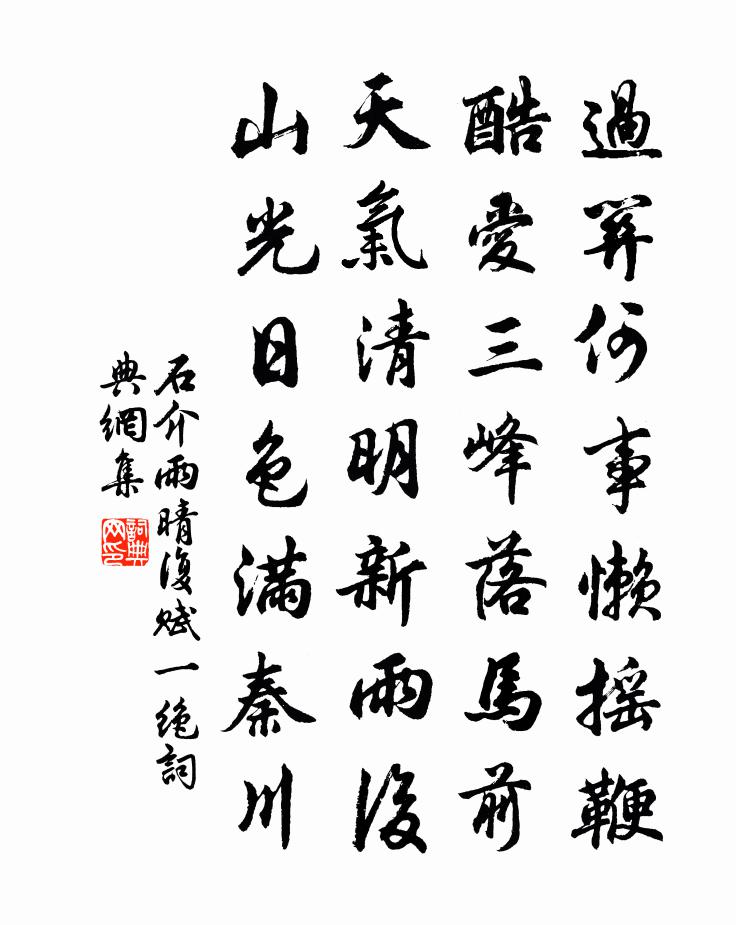 過關何事懶搖鞭
酷愛三峰落馬前
天氣清明新雨後
山光日色滿秦川
石介雨晴復賦一絶詞
典網集
詞典
网印